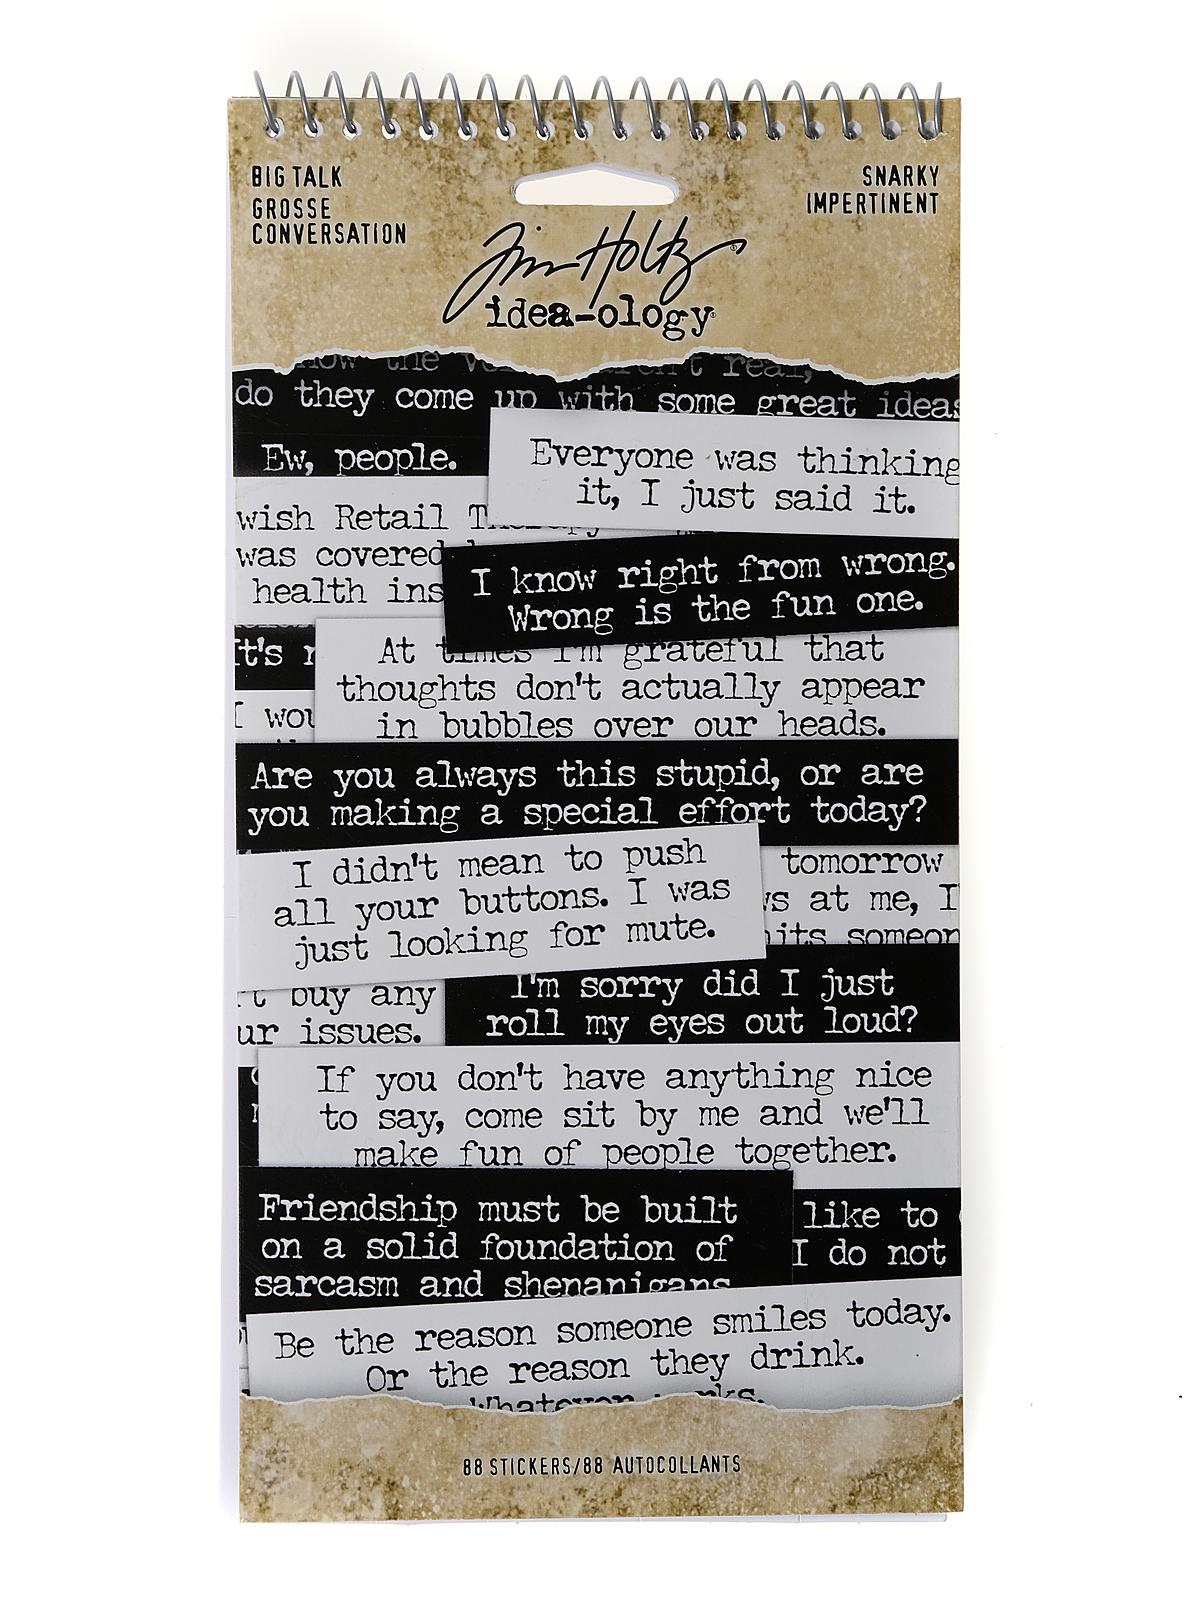 BIG TALK
GROSSE
CONVERSATION
SNARKY
IMPERTINENT
Tim Holtz
idea-ology
the real,
do they come up with some great ideas
Ew, people.
Everyone was thinking
it, I just said it.
wish Retail Therapy
was covered
health ins
I know right from wrong.
Wrong is the fun one.
It's
At times I'm grateful that
thoughts don't actually appear
in bubbles over our heads.
I wou
Are you always this stupid, or are
you making a special effort today?
I didn't mean to push
all your buttons. I was
just looking for mute.
tomorrow
ws at me, I
hits someon
't buy any
ur issues.
I'm sorry did I just
roll my eyes out loud?
If you don't have anything nice
to say, come sit by me and we'll
make fun of people together.
Friendship must be built
on a solid foundation of
sarcasm and shenanigans
like to
I do not
Be the reason someone smiles today.
Or the reason they drink.
Whatever works.
88 STICKERS/88 AUTOCOLLANTS